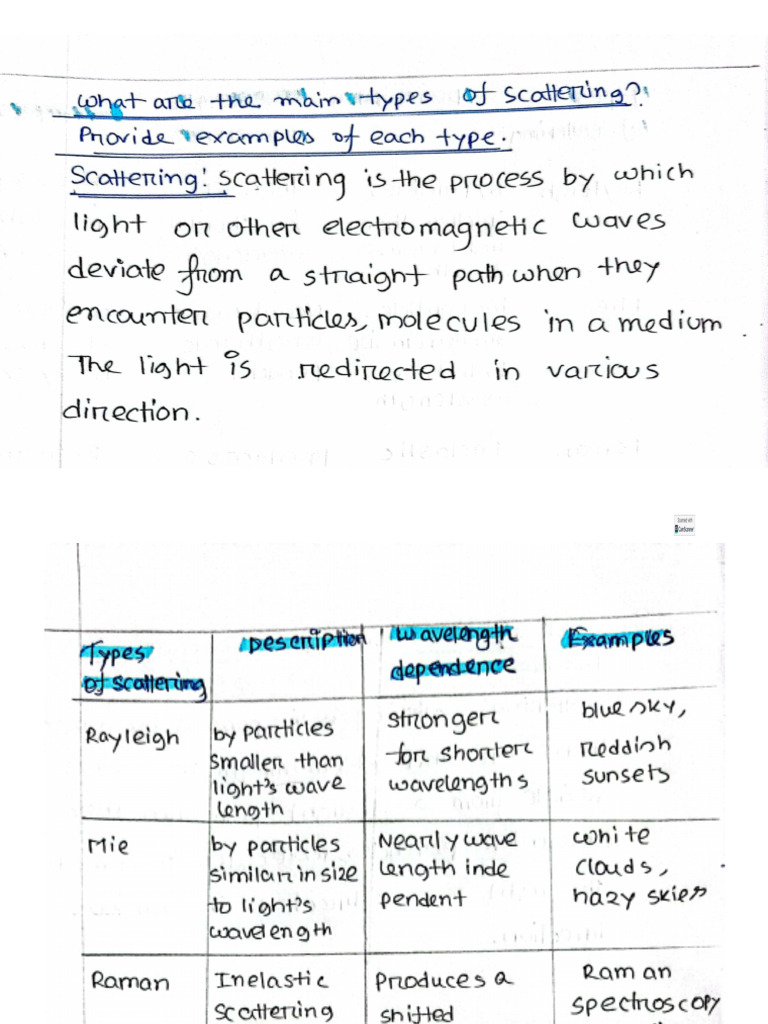 What are the main types of scattering?
Provide examples of each type.
Scattering: scattering is the process by which
light or other electromagnetic waves
deviate from a straight path when they
encounter particles, molecules in a medium.
The light is redirected in various
direction.
Scanned with
CamScanner
Types of scattering
Description
Wavelength dependence
Examples
Rayleigh
by particles
smaller than
light's wave
length
stronger
for shorter
wavelengths
blue sky,
reddish
sunsets
Mie
by particles
similar in size
to light's
wavelength
Nearly wave
length inde
pendent
white
clouds,
hazy skies
Raman
Inelastic
scattering
Produces a
shifted
Raman
spectroscopy